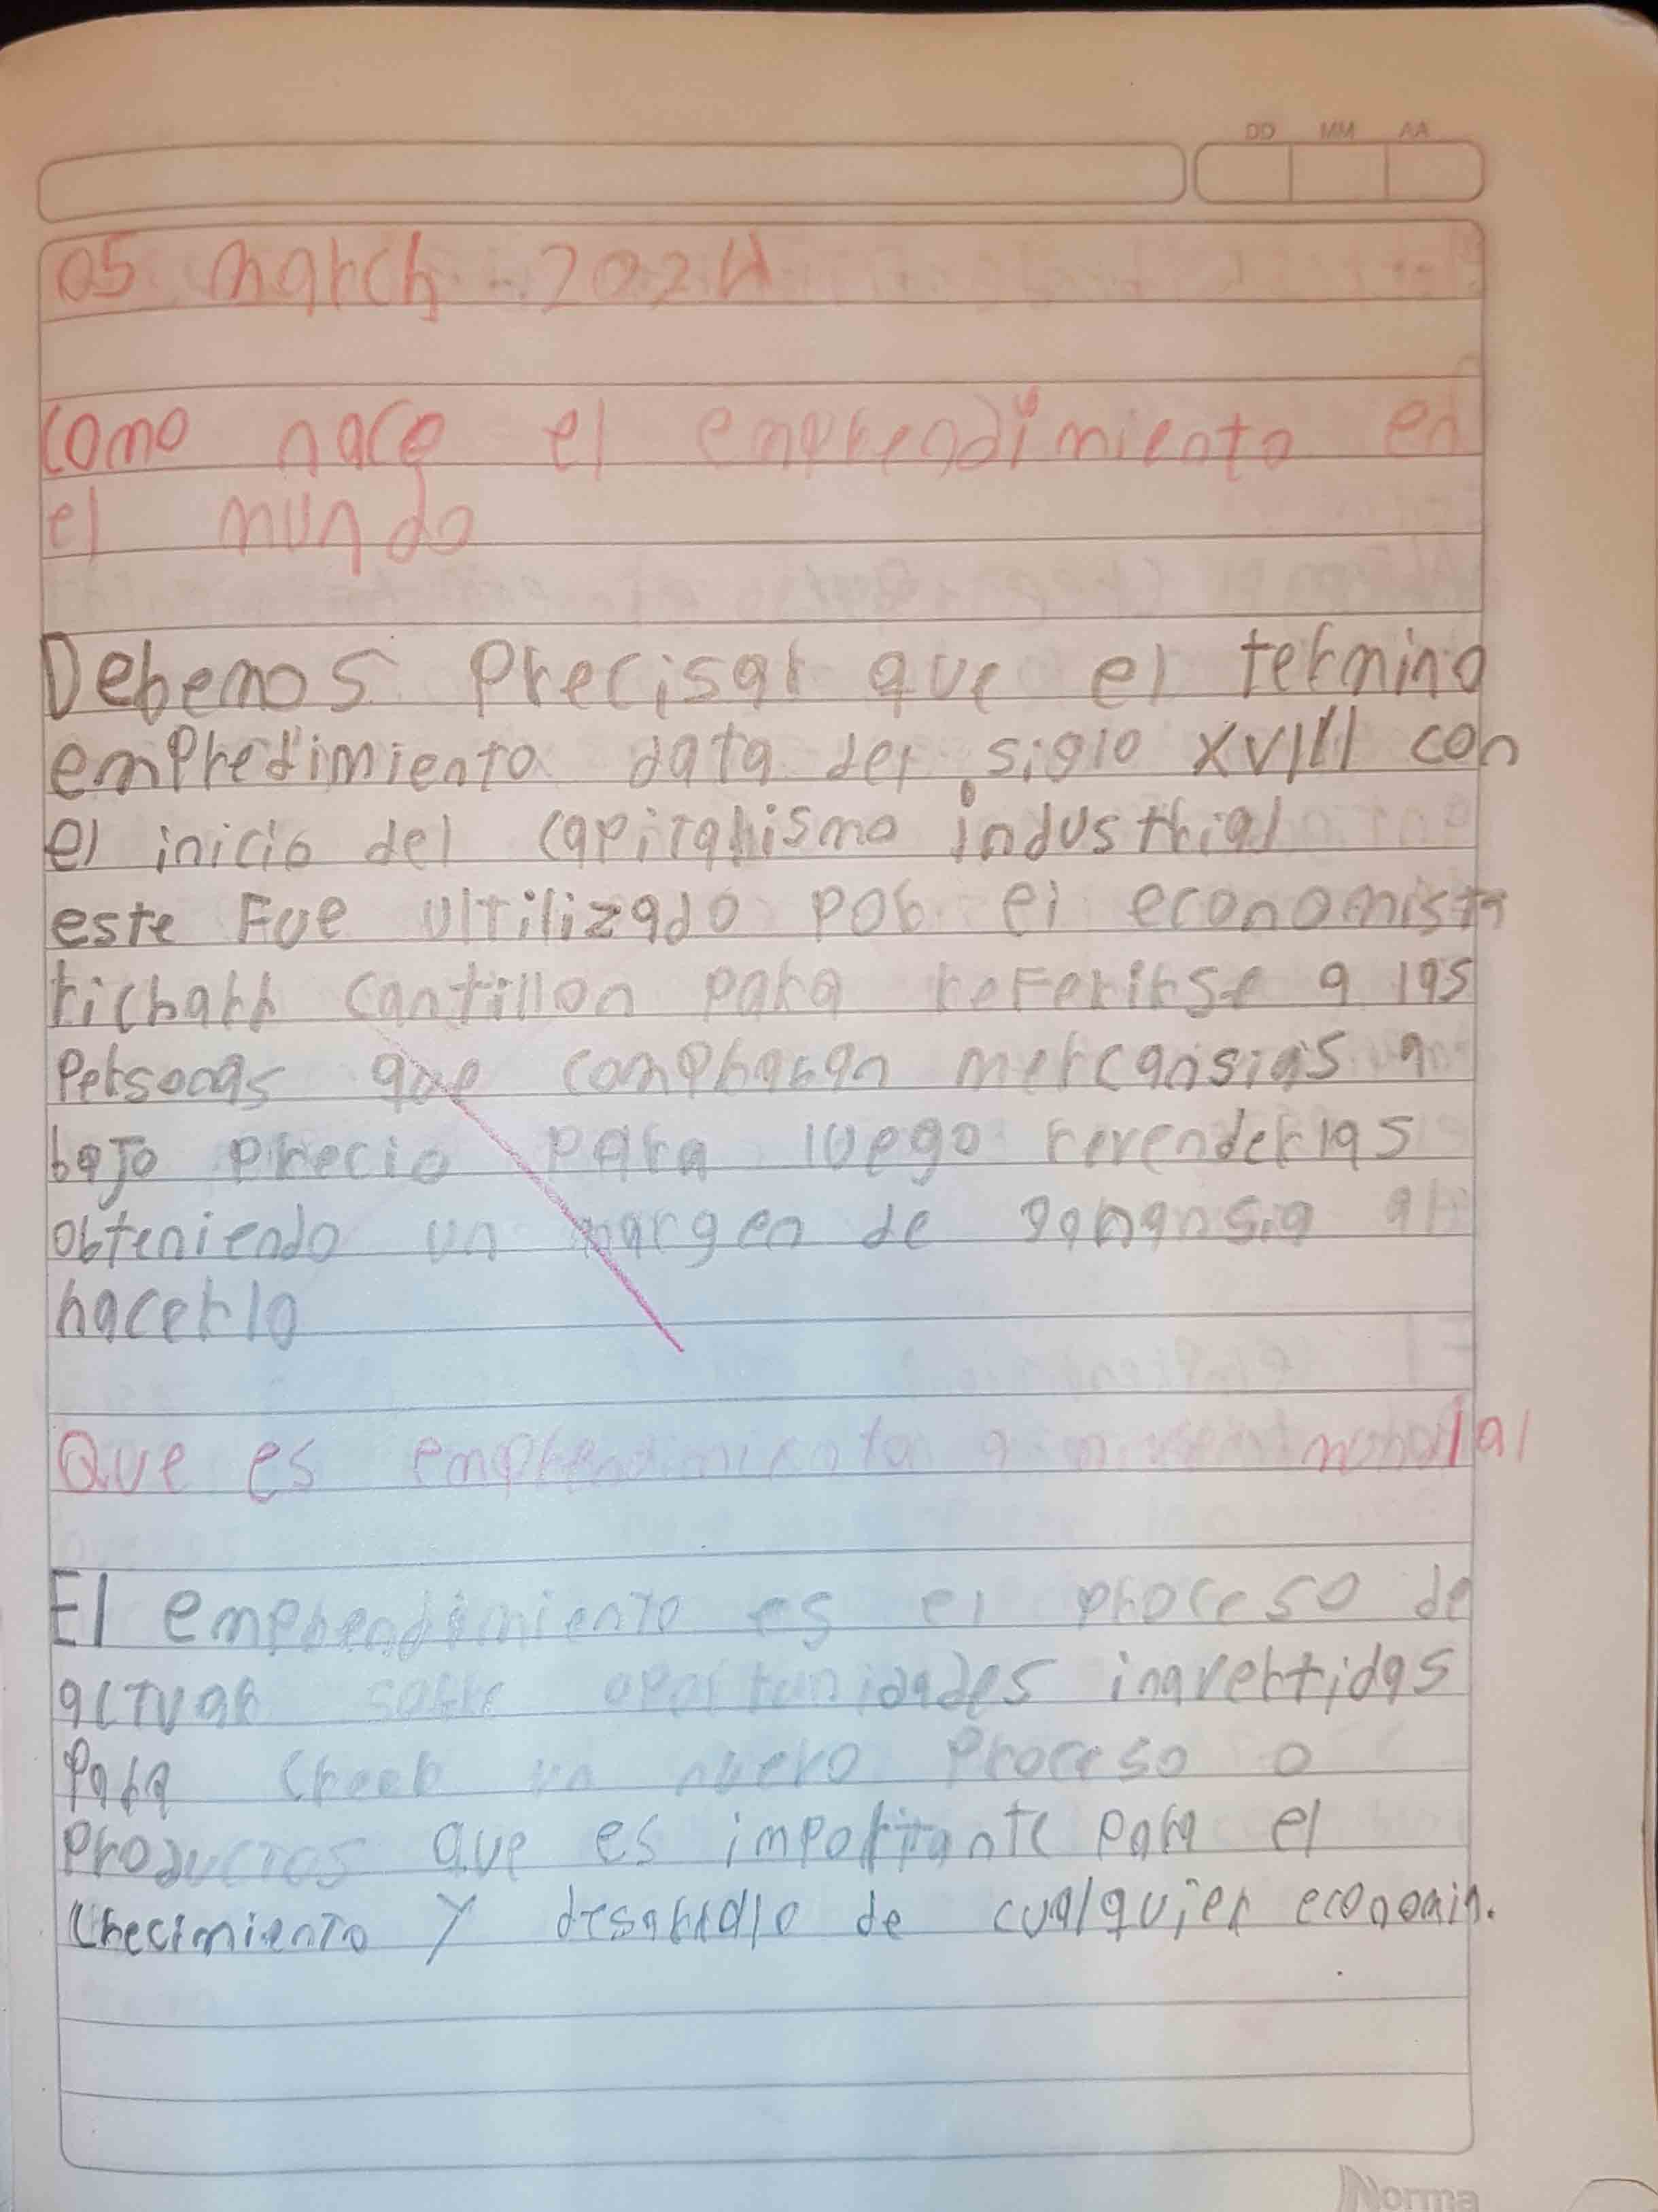 DD MM AA
05 march - 2024
como nace el emprendimiento en
el mundo
Debemos Precisar que el termino
empredimiento data del siglo XVIII con
el inicio del capitalismo industrial
este Fue ultilizado por el economista
richarr cantillon para reFerirse a las
Personas que comphaban mercansias a
bajo precio para luego revenderlas
obteniendo un margen de ganansia al
hacerlo
Que es emprendimiento a mundial
El emprendimiento es el proceso de
actuar sobre oportunidades inavertidas
Para Creer un nuevo Proceso o
Productos que es importante para el
Crecimiento y desarrollo de cualquier economia.
Norma